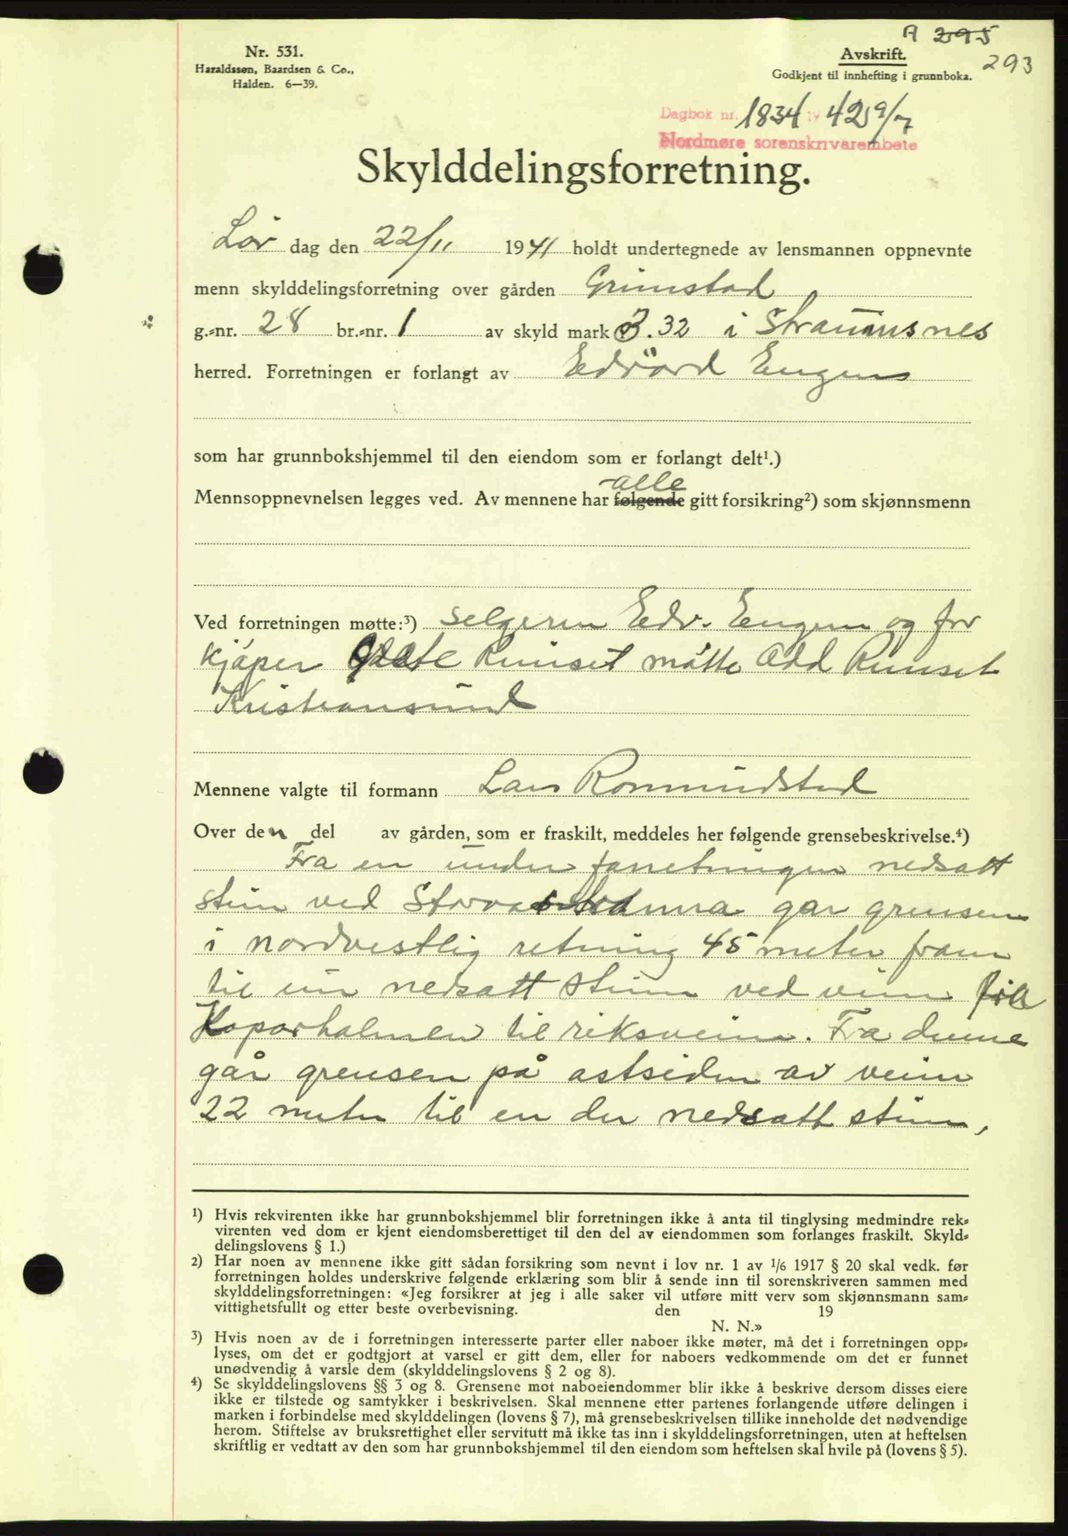 Nr. 531.
Haraldssøn, Baardsen & Co.,
Halden. 6—39.
A 295
293
Avskrift.
Godkjent til innhefting i grunnboka.
Dagbok nr. 1834 19 42 9/7
Nordmøre sorenskrivarembete
Skylddelingsforretning.
Lør dag den 22/11 1941 holdt undertegnede av lensmannen oppnevnte
menn skylddelingsforretning over gården Grimstad
g.-nr. 28 br.-nr. 1 av skyld mark 3.32 i Straumsnes
herred. Forretningen er forlangt av Edvard Engen
som har grunnbokshjemmel til den eiendom som er forlangt delt¹.)
alle
Mennsoppnevnelsen legges ved. Av mennene har følgende gitt forsikring²) som skjønnsmenn
Ved forretningen møtte:³) selgeren Edv. Engen og for
kjøper Rimset møtte Odd Rimset
Kristiansund
Mennene valgte til formann Lars Romundstad
Over den del av gården, som er fraskilt, meddeles her følgende grensebeskrivelse.⁴)
Fra en under forretningen nedsatt
stein ved går grensen
i nordvestlig retning 45 meter fram
til en nedsatt stein ved veien fra
Koparholmen til riksveien. Fra denne
går grensen på østsiden av veien
22 meter til en der nedsatt stein,
¹) Hvis rekvirenten ikke har grunnbokshjemmel blir forretningen ikke å anta til tinglysing medmindre rek-
virenten ved dom er kjent eiendomsberettiget til den del av eiendommen som forlanges fraskilt. Skyld-
delingslovens § 1.)
²) Har noen av mennene ikke gitt sådan forsikring som nevnt i lov nr. 1 av 1/6 1917 § 20 skal vedk. før
forretningen holdes underskrive følgende erklæring som blir å sende inn til sorenskriveren sammen med
skylddelingsforretningen: «Jeg forsikrer at jeg i alle saker vil utføre mitt verv som skjønnsmann sam-
vittighetsfullt og etter beste overbevisning. den 19
N. N.»
³) Hvis noen av de i forretningen interesserte parter eller naboer ikke møter, må det i forretningen opp-
lyses, om det er godtgjort at varsel er gitt dem, eller for naboers vedkommende om det er funnet
unødvendig å varsle dem (skylddelingslovens § 2 og 8).
⁴) Se skylddelingslovens §§ 3 og 8. Grensene mot naboeiendommer blir ikke å beskrive dersom disses eiere
ikke er tilstede og samtykker i beskrivelsen. Skal mennene etter partenes forlangende utføre delingen i
marken i forbindelse med skylddelingen (lovens § 7), må grensebeskrivelsen tillike inneholde det nødvendige
herom. Stiftelse av bruksrettighet eller servitutt må ikke tas inn i skylddelingsforretningen, uten at heftelsen
skriftlig er vedtatt av den som har grunnbokshjemmel til den eiendom som heftelsen skal hvile på (lovens § 5).